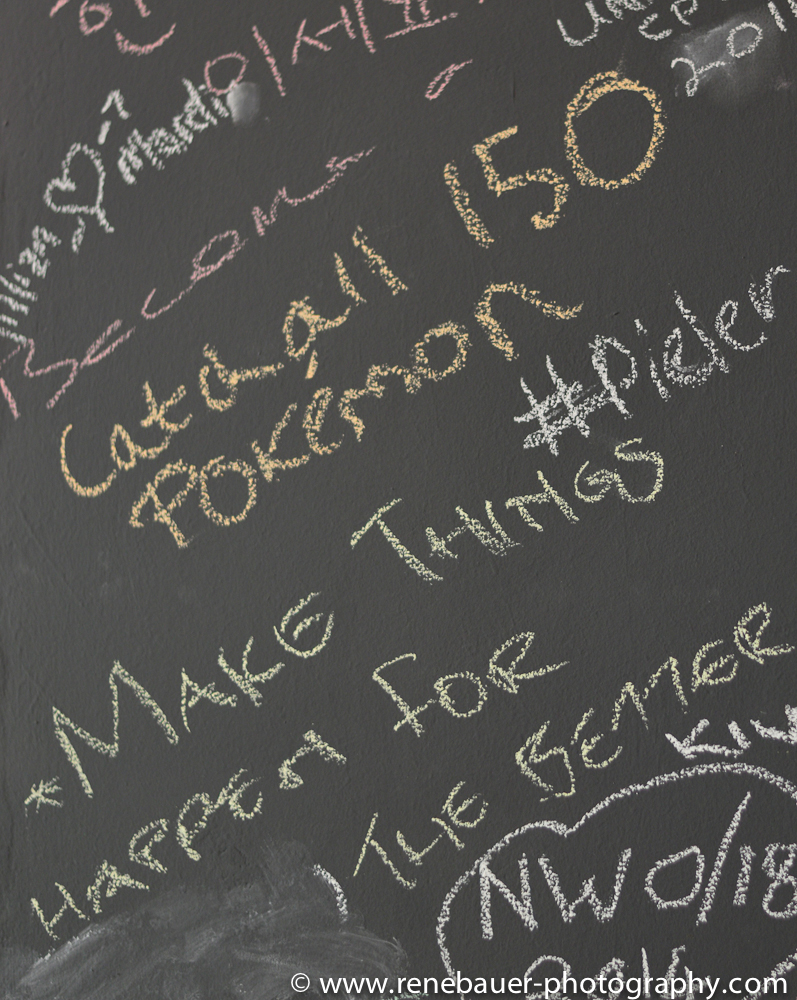 이세호
2011
Mardi
Become
Catch all 150
POKEMON
#Pider
*MAKE THINGS
HAPPEN FOR
THE BETTER
NWO/18
© www.renebauer-photography.com